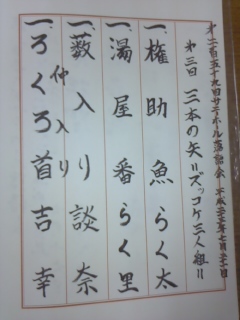 第二百五十九回サニーホール落語会 平成二十三年七月二十一日
第三回 三本の矢〃ズッコケ三人組〃
一、権助魚 らく太
一、湯屋番 らく里
一、薮入り 談奈
仲入り
一、ろくろ首 吉幸